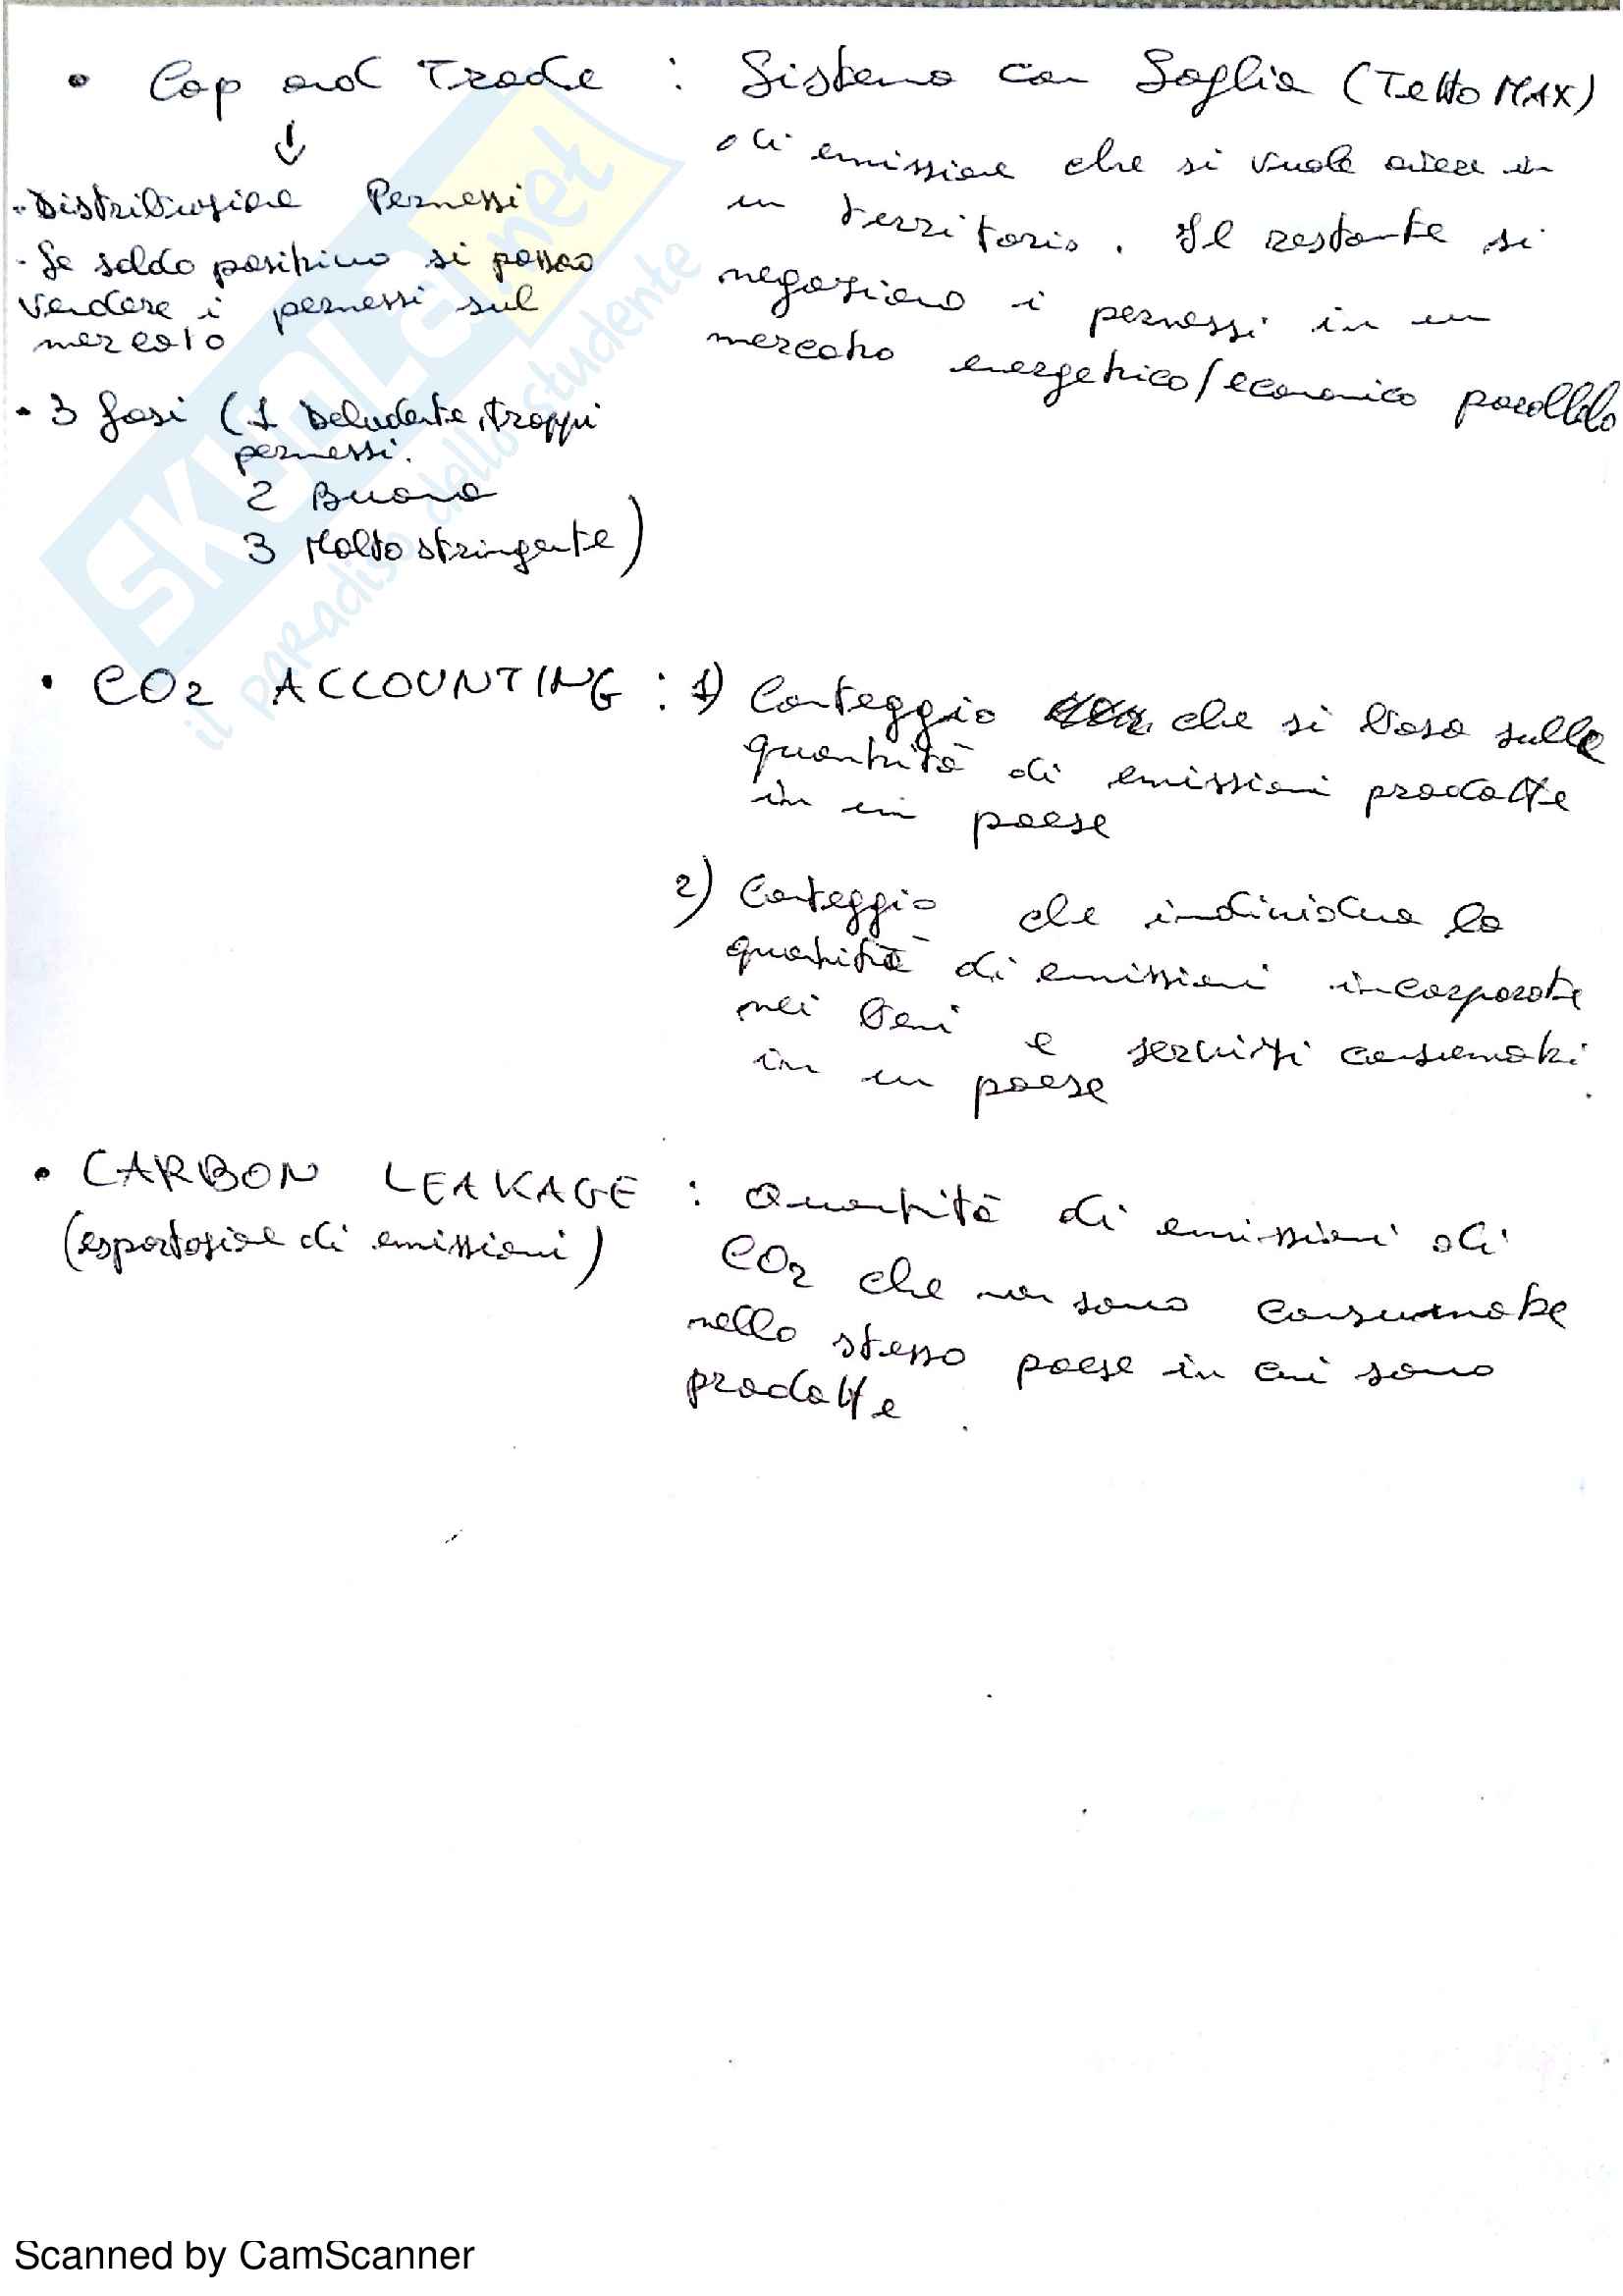 • Cap and Trade : Sistema con Soglia (Tetto MAX)
di emissione che si vuole avere in
un territorio. Il restante si
negoziano i permessi in un
mercato energetico/economico parallelo
↓
- Distribuzione Permessi
- Se saldo positivo si possono
vendere i permessi sul
mercato
• 3 fasi (1 Deludente, troppi
permessi.
2 Buona
3 Molto stringente)
• CO2 ACCOUNTING : 1) Conteggio che si basa sulle
quantità di emissioni prodotte
in un paese
2) Conteggio che individua la
quantità di emissioni incorporate
nei beni e servizi consumati
in un paese.
• CARBON LEAKAGE : Quantità di emissioni di
(esportazione di emissioni)
CO2 che non sono consumate
nello stesso paese in cui sono
prodotte.
SKUOLA.net
il paradiso dello studente
Scanned by CamScanner